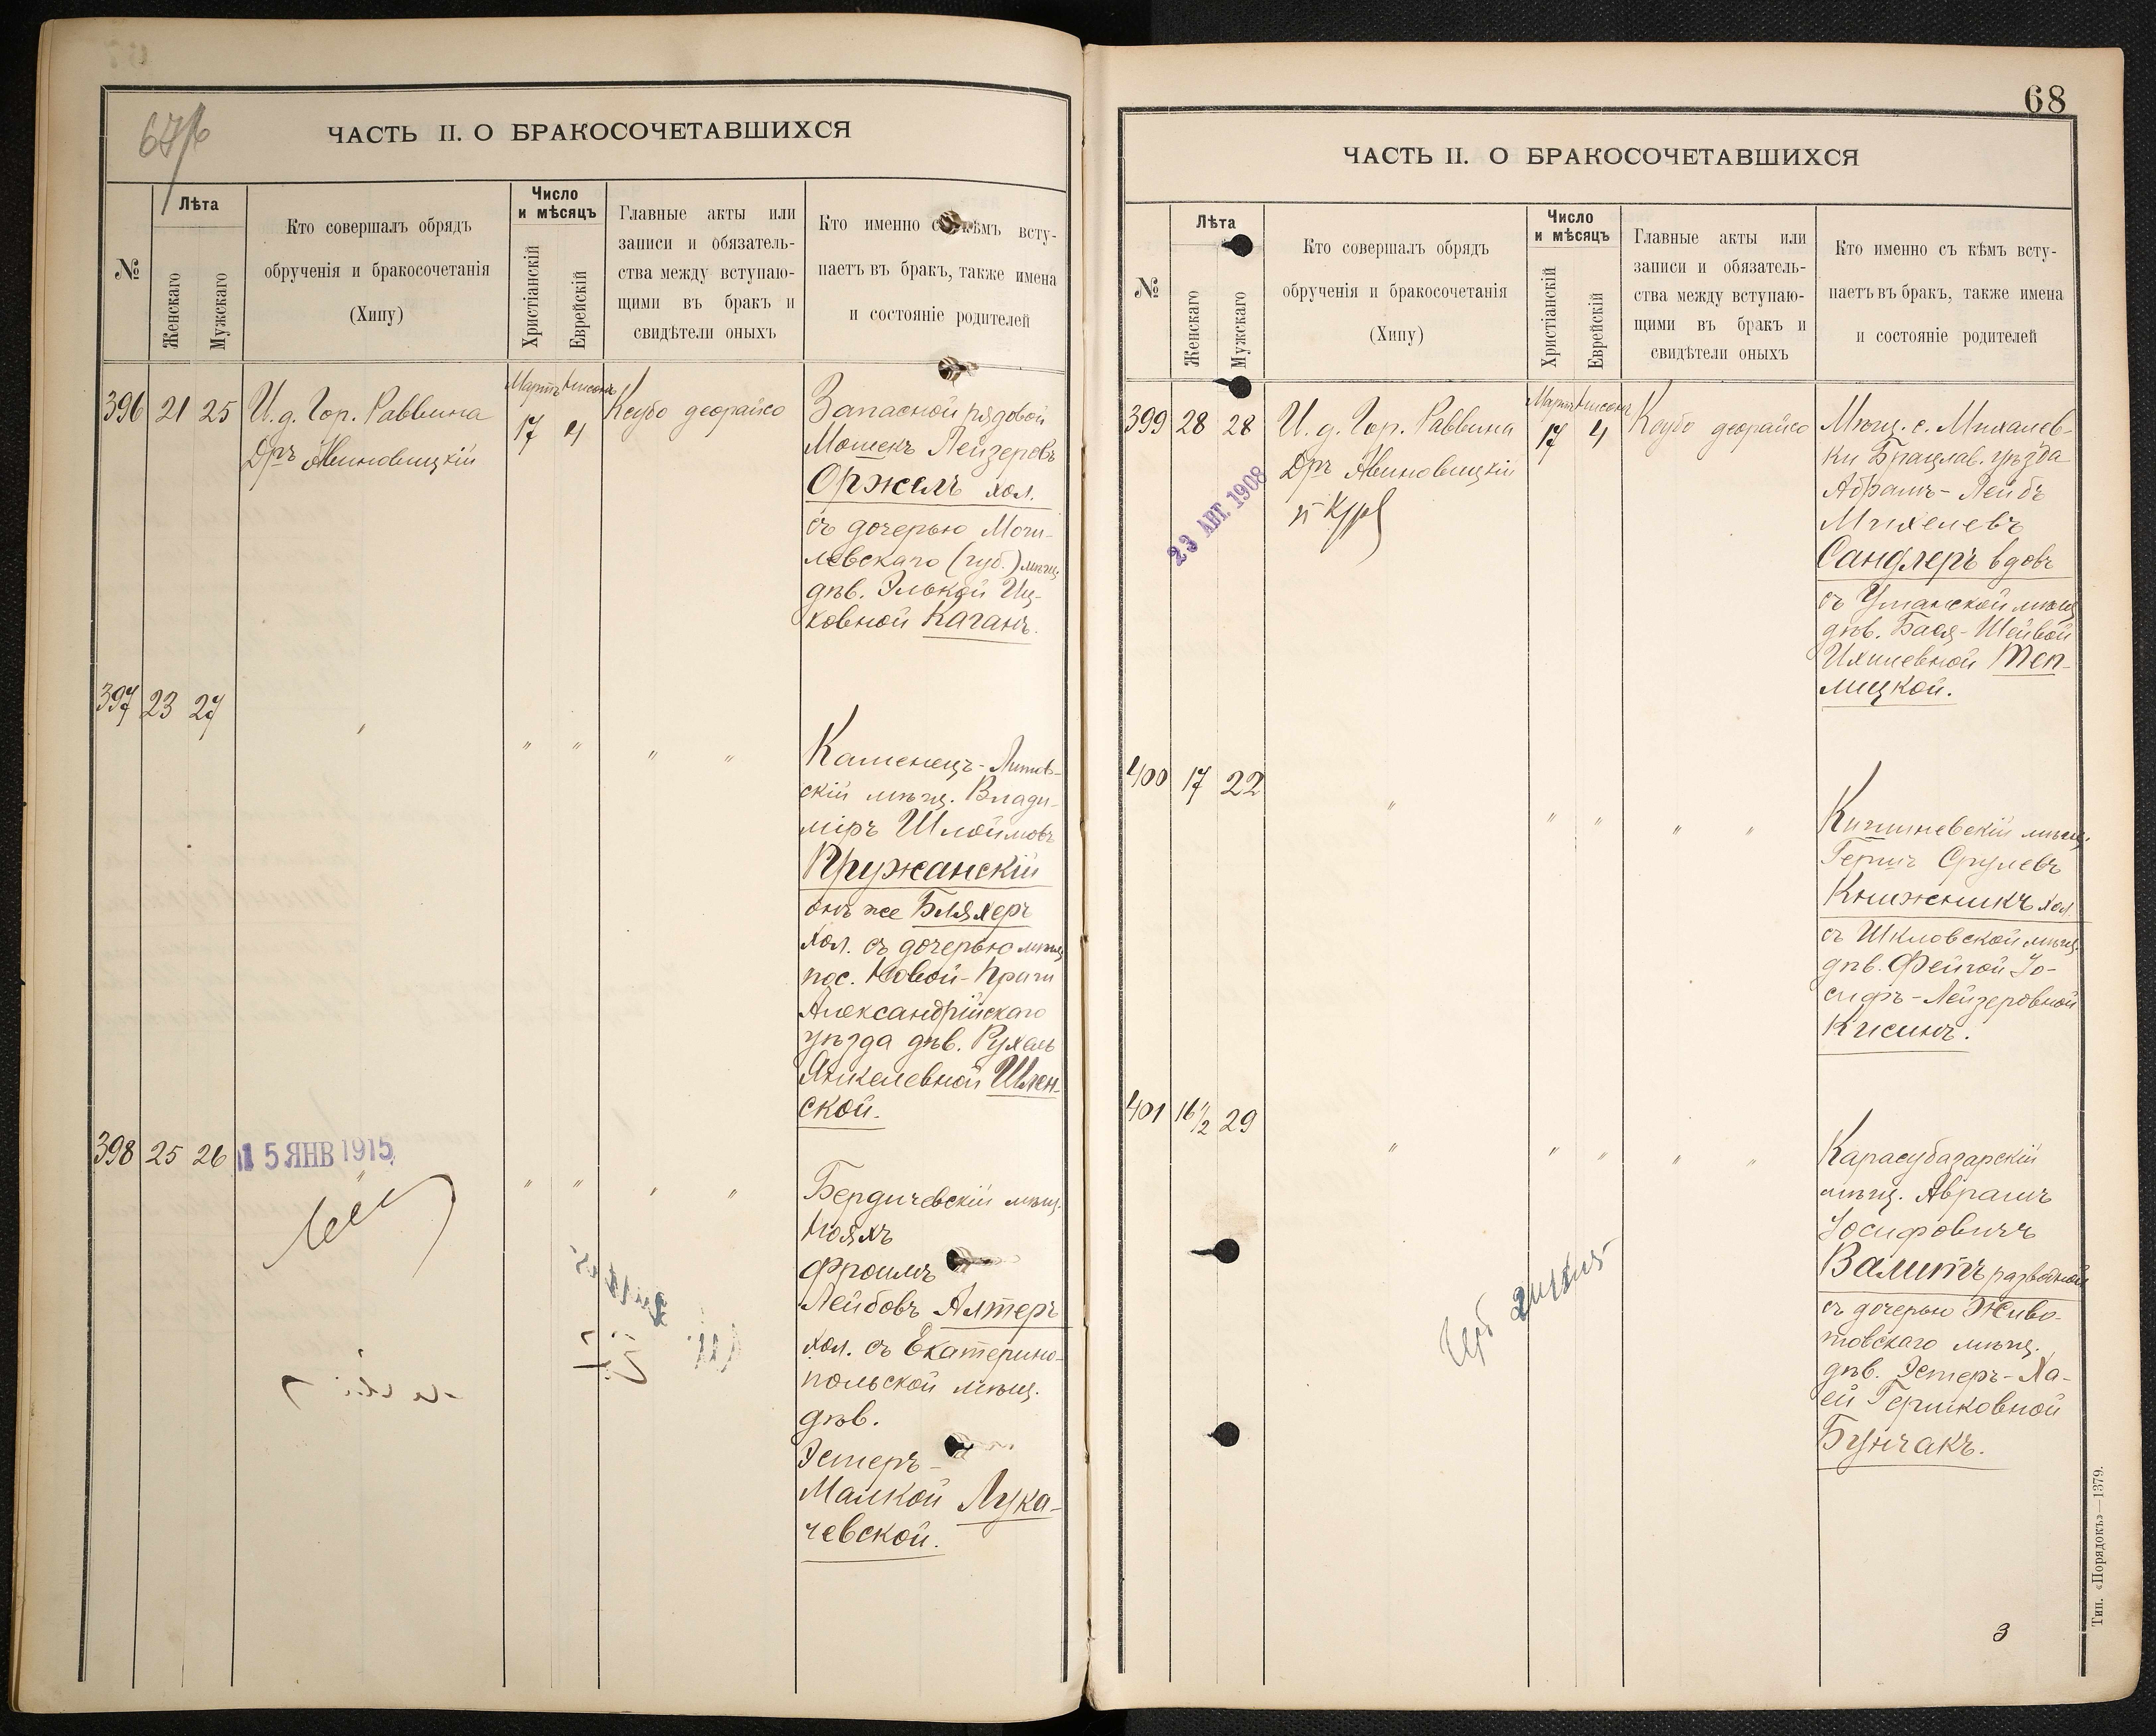 ЧАСТЬ II. О БРАКОСОЧЕТАВШИХСЯ
№
Лѣта
Женскаго
Мужскаго
Кто совершалъ обрядъ
обрученія и бракосочетанія
(Хипу)
Число
и мѣсяцъ
Христіанскій
Еврейскій
Главные акты или
записи и обязатель-
ства между вступаю-
щими въ бракъ и
свидѣтели оныхъ
Кто именно съ кѣмъ всту-
паетъ въ бракъ, также имена
и состояніе родителей
396 21 25
И. д. Гор. Раввина
Дръ Авиновицкій
Мартъ Нисонъ
17 4
Ксубо деорайсо
Запасной рядовой
Мошекъ Лейзеровъ
Оржелъ хол.
съ дочерью Моги-
левскаго (губ.) мѣщ.
дѣв. Элькой Иц-
ковной Каганъ.
397 23 27
" " " "
Каменецъ-Литов-
скій мѣщ. Влади-
міръ Шлоймовъ
Пружанскій
онъ же Бляхеръ
хол. съ дочерью мѣщ.
пос. Новой-Праги
Александрійскаго
уѣзда дѣв. Рухель
Янкелевной Шлен-
ской.
398 25 26
15 ЯНВ 1915
" " " "
Бердичевскій мѣщ.
Нояхъ
Фроимъ
Лейбовъ Алтеръ
хол. съ Екатерино-
польской мѣщ.
дѣв.
Эстеръ-
Малкой Лука-
чевской.
68
ЧАСТЬ II. О БРАКОСОЧЕТАВШИХСЯ
№
Лѣта
Женскаго
Мужскаго
Кто совершалъ обрядъ
обрученія и бракосочетанія
(Хипу)
Число
и мѣсяцъ
Христіанскій
Еврейскій
Главные акты или
записи и обязатель-
ства между вступаю-
щими въ бракъ и
свидѣтели оныхъ
Кто именно съ кѣмъ всту-
паетъ въ бракъ, также имена
и состояніе родителей
399 28 28
И. д. Гор. Раввина
Дръ Авиновицкій
23 АВГ. 1908
Мартъ Нисонъ
17 4
Ксубо деорайсо
Мѣщ. с. Михалев-
ки Брацлав. уѣзда
Абрамъ-Лейбъ
Михелевъ
Сандлеръ вдовъ
съ Уманской мѣщ.
дѣв. Бася-Шейвой
Ихилевной Теп-
лицкой.
400 17 22
" " " " "
Кишиневскій мѣщ.
Гершъ Срулевъ
Книжникъ хол.
съ Шкловской мѣщ.
дѣв. Фейгой Іо-
сифъ-Лейзеровной
Кисинъ.
401 16 1/2 29
" " " " "
Карасубазарскій
мѣщ. Авраамъ
Іосифовичъ
Валитъ разведеной
съ дочерью Живо-
товскаго мѣщ.
дѣв. Эстеръ-Ха-
ей Гершковной
Бунчакъ.
3
Тип. «Порядокъ»—1379.